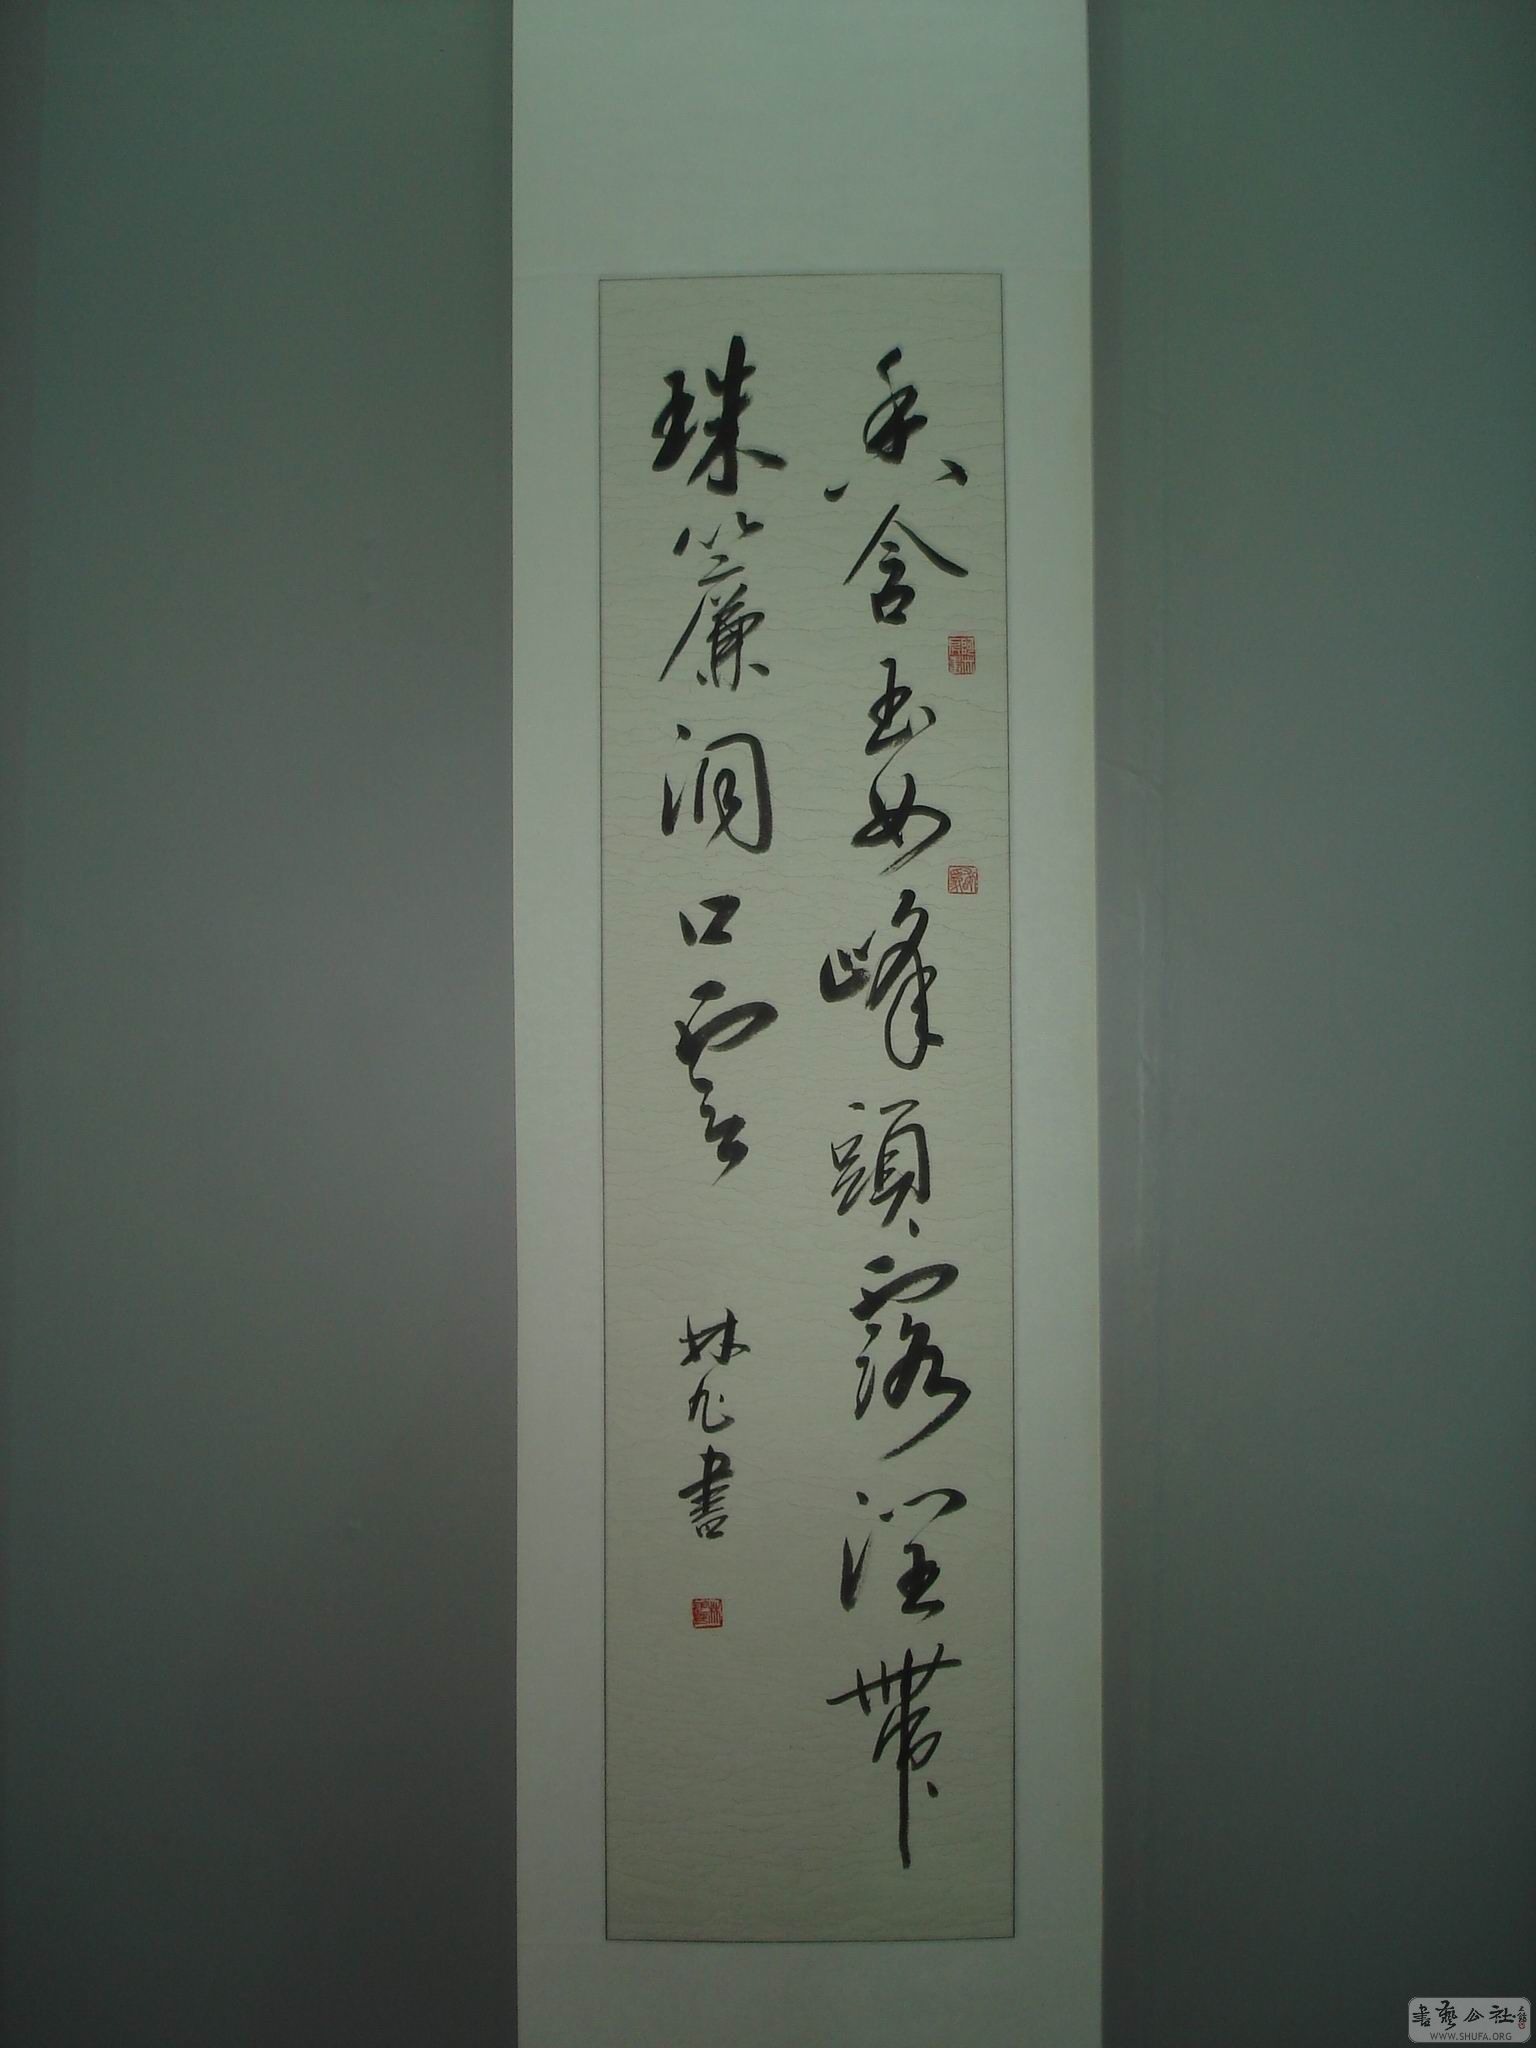 香含玉女峰頭露潤帶
珠簾洞口雲
林旭書
書藝公社
WWW.SHUFA.ORG